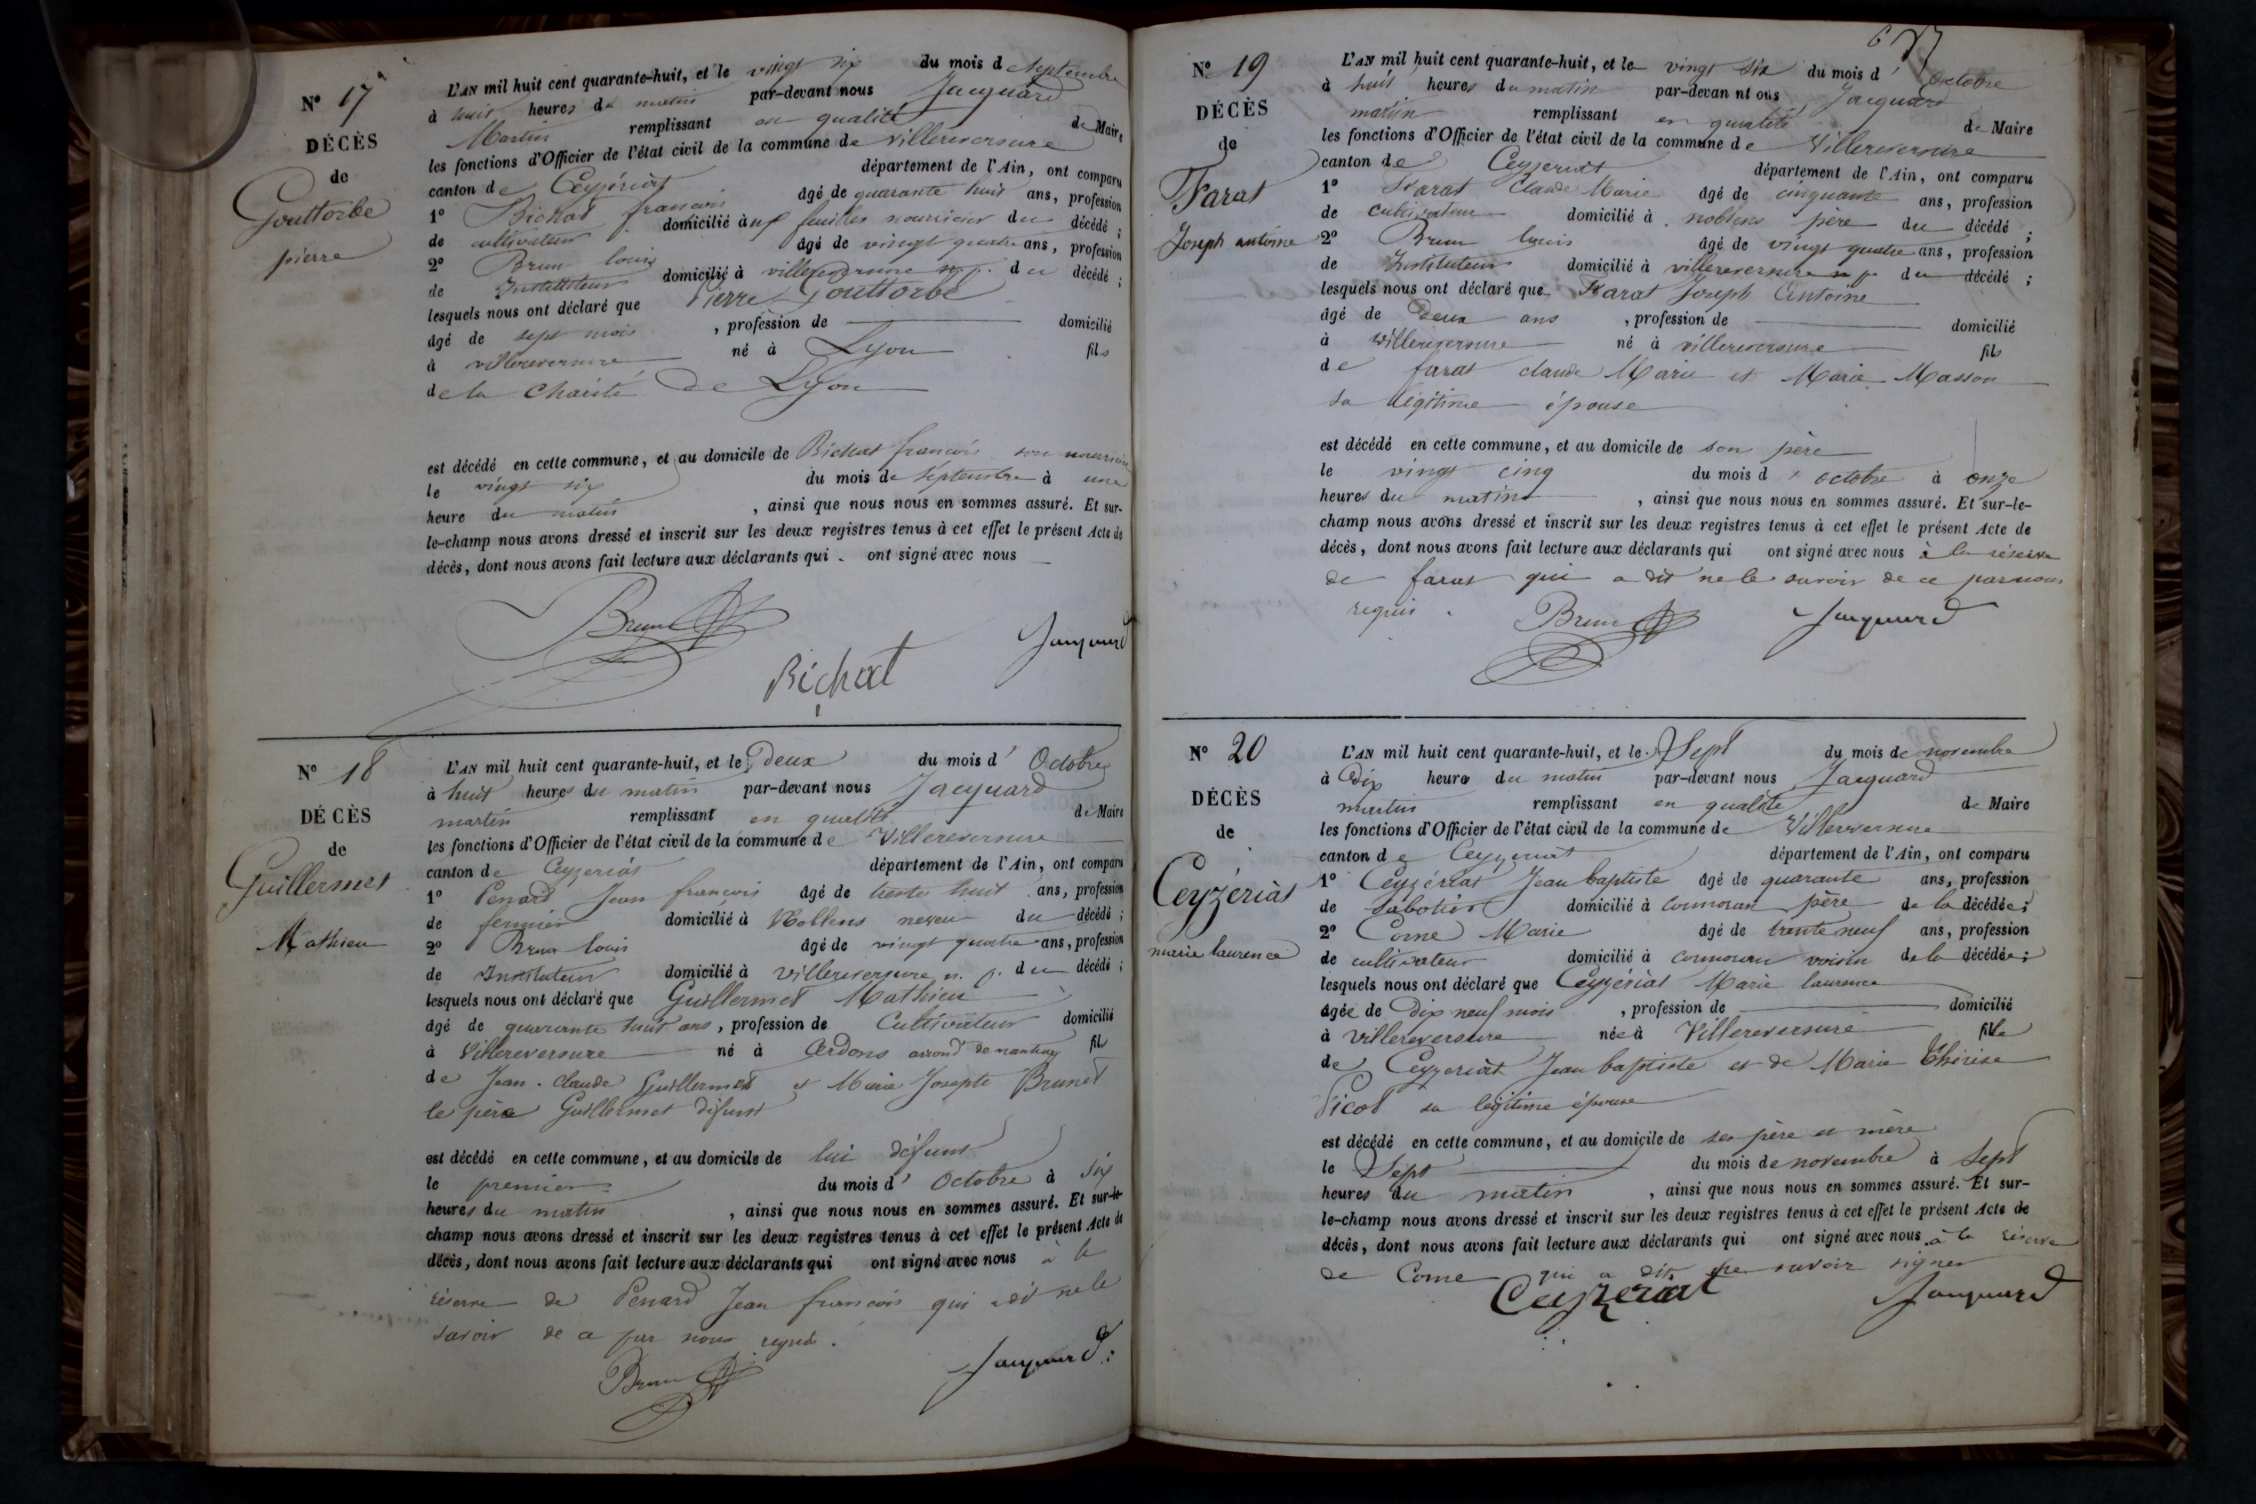 N° 17
DÉCÈS
de
Gouttorbe
pierre
L'AN mil huit cent quarante-huit, et le vingt six du mois de Septembre
à huit heures du matin par-devant nous Jacquard
Martin remplissant en qualité de Maire
les fonctions d'Officier de l'état civil de la commune de Villereversure
canton de Ceyzériat département de l'Ain, ont comparu
1° Bichat françois âgé de quarante huit ans, profession
de cultivateur domicilié à feuilles nourricier du décédé ;
2° Brun louis âgé de vingt quatre ans, profession
de Instituteur domicilié à villereversure n. p. du décédé ;
lesquels nous ont déclaré que Pierre Gouttorbe
âgé de sept mois , profession de domicilié
à villereversure né à Lyon fils
de la Charité de Lyon
est décédé en cette commune, et au domicile de Bichat françois son nourricier
le vingt six du mois de Septembre à une
heure du matin , ainsi que nous nous en sommes assuré. Et sur-
le-champ nous avons dressé et inscrit sur les deux registres tenus à cet effet le présent Acte de
décès, dont nous avons fait lecture aux déclarants qui ont signé avec nous
Brun
Jacquard
Bichat
N° 18
DÉCÈS
de
Guillermet
Mathieu
L'AN mil huit cent quarante-huit, et le Deux du mois d' Octobre
à huit heures du matin par-devant nous Jacquard
martin remplissant en qualité de Maire
les fonctions d'Officier de l'état civil de la commune de Villereversure
canton de Ceyzeriat département de l'Ain, ont comparu
1° Penard Jean françois âgé de trente huit ans, profession
de fermier domicilié à Noblens neveu du décédé ;
2° Brun louis âgé de vingt quatre ans, profession
de Instituteur domicilié à villereversure n. p. du décédé ;
lesquels nous ont déclaré que Guillermet Mathieu
âgé de quarante huit ans, profession de Cultivateur domicilié
à Villereversure né à Cerdons arrond' de nantua fils
de Jean-claude Guillermet et Marie Josepte Brunet
le père Guillermet défunt
est décédé en cette commune, et au domicile de lui défunt
le premier du mois d' Octobre à six
heures du matin , ainsi que nous nous en sommes assuré. Et sur-le-
champ nous avons dressé et inscrit sur les deux registres tenus à cet effet le présent Acte de
décès, dont nous avons fait lecture aux déclarants qui ont signé avec nous à la
réserve de Penard Jean françois qui a dit ne le
savoir de ce par nous requis.
Brun
Jacquard
N° 19
DÉCÈS
de
Farat
Joseph antoine
L'AN mil huit cent quarante-huit, et le vingt six du mois d' Octobre
à huit heures du matin par-devan nt ous Jacquard
martin remplissant en qualité de Maire
les fonctions d'Officier de l'état civil de la commune de Villereversure
canton de Ceyzeriat département de l'Ain, ont comparu
1° Farat Claude Marie âgé de cinquante ans, profession
de cultivateur domicilié à noblens père du décédé ;
2° Brun louis âgé de vingt quatre ans, profession
de Instituteur domicilié à villereversure n p. du décédé ;
lesquels nous ont déclaré que Farat Joseph Antoine
âgé de Deux ans , profession de domicilié
à villereversure né à villereversure fils
de farat claude Marie et Marie Masson
sa légitime épouse
est décédé en cette commune, et au domicile de son père
le vingt cinq du mois d' octobre à onze
heures du matin , ainsi que nous nous en sommes assuré. Et sur-le-
champ nous avons dressé et inscrit sur les deux registres tenus à cet effet le présent Acte de
décès, dont nous avons fait lecture aux déclarants qui ont signé avec nous à la réserve
de farat qui a dit ne le savoir de ce par nous
requis.
Brun
Jacquard
N° 20
DÉCÈS
de
Ceyzériat
marie laurence
L'AN mil huit cent quarante-huit, et le Sept du mois de novembre
à Dix heure du matin par-devant nous Jacquard
martin remplissant en qualité de Maire
les fonctions d'Officier de l'état civil de la commune de Villereversure
canton de Ceyzeriat département de l'Ain, ont comparu
1° Ceyzériat Jean baptiste âgé de quarante ans, profession
de Sabotier domicilié à cormoran père de la décédée ;
2° Corne Marie âgé de trente neuf ans, profession
de cultivateur domicilié à cormoran voisin de la décédée ;
lesquels nous ont déclaré que Ceyzériat Marie laurence
âgée de Dix neuf mois , profession de domicilié
à villereversure née à Villereversure fille
de Ceyzeriat Jean baptiste et de Marie Thérèse
Picot sa légitime épouse
est décédé en cette commune, et au domicile de ses père et mère
le Sept du mois de novembre à Sept
heures du matin , ainsi que nous nous en sommes assuré. Et sur-
le-champ nous avons dressé et inscrit sur les deux registres tenus à cet effet le présent Acte de
décès, dont nous avons fait lecture aux déclarants qui ont signé avec nous à la réserve
de Corne qui a dit ne savoir signer
Ceyzeriat
Jacquard